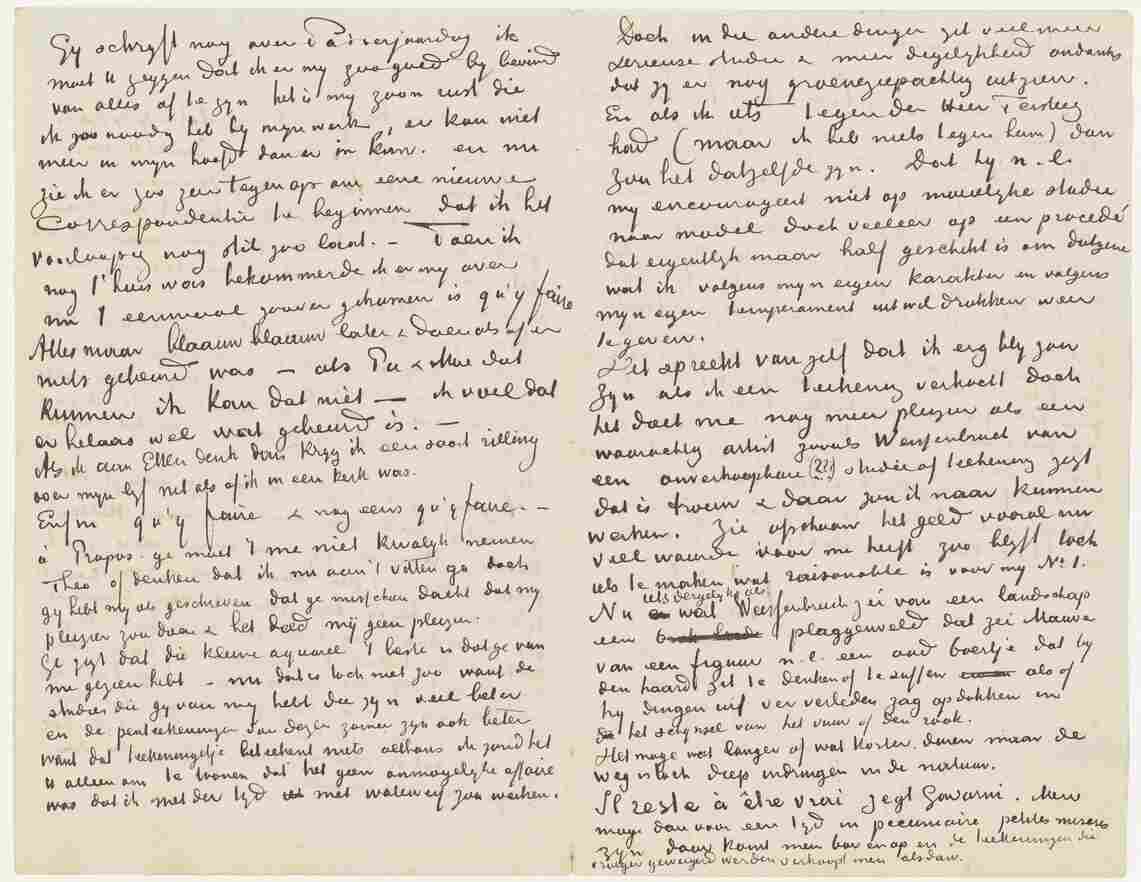 Gij schrijft nog over Pa's verjaardag ik
moet U zeggen dat ik er my zoo goed by bevind
van alles af te zyn het is my zoon rust die
ik zoo noodig heb by myn werk, er kan niet
meer in myn hoofd dan er in kan. en nu
zie ik er zoo zeer tegen op om eene nieuwe
Correspondentie te beginnen dat ik het
voorloopig nog stil zoo laat. – Toen ik
nog t'huis was bekommerde ik er my over
nu 't eenmaal zoover gekomen is qu'y faire
Alles maar blaauw blaauw laten & doen als of er
niets gebeurd was – als Pa & Moe dat
kunnen ik kan dat niet – ik voel dat
er helaas wel wat gebeurd is. –
Als ik aan Etten denk dan kryg ik een soort rilling
over myn lyf net als of ik in een kerk was.
Enfin qu'y faire & nog eens qu'y faire. –
à Propos. ge moet 't me niet kwalyk nemen
Theo of denken dat ik nu aan 't vitten ga doch
gy hebt my als geschreven dat ge misschien dacht dat my
pleizier zou doen & het deed mij geen pleizier.
Ge zegt dat die kleine aquarel 't beste is dat ge van
me gezien hebt – nu dat is toch niet zoo want de
studies die gy van my hebt die zyn veel beter
en de penteekeningen van dezen zomer zyn ook beter
want dat teekeningetje beteekent niets althans ik zond het
U alleen om te toonen dat het geen onmogelyke affaire
was dat ik met der tyd met waterverf zou werken.
Doch in die andere dingen zit veel meer
serieuse studie & meer degelykheid ondanks
dat zy er nog groenezeepachtig uitzien.
En als ik iets tegen den Heer Tersteeg
had (maar ik heb niets tegen hem) dan
zou het datzelfde zyn. Dat hy n.l.
my encourageert niet op moeielyke studie
naar model doch veeleer op een procedé
dat eigentlyk maar half geschikt is om datgene
wat ik volgens myn eigen karakter en volgens
myn eigen temperament uit wil drukken weer
te geven.
Het spreekt van zelf dat ik erg bly zou
zyn als ik een teekening verkocht doch
het doet me nog meer pleizier als een
waarachtig artist zooals Weissenbruch van
een onverkoopbare (??) studie of teekening zegt
dat is trouw & daar zou ik naar kunnen
werken. Zie ofschoon het geld vooral nu
veel waarde voor me heeft zoo blyft toch
iets te maken wat raisonable is voor my No 1.
Nu iets dergelyks als wat Weissenbruch zei van een landschap
een plaggenveld dat zei Mauve
van een figuur n.l. een oud boertje dat by
den haard zit te denken of te suffen als of
hy dingen uit ver verleden zag opdokken in
het schynsel van het vuur of den rook.
Het moge wat langer of wat korter duren maar de
weg is toch diep indringen in de natuur.
Il reste à être vrai zegt Gavarni. Men
moge dan voor een tyd in pecuniaire petites misères
zyn daar komt men boven op en de teekeningen die
vroeger geweigerd werden verkoopt men alsdan.